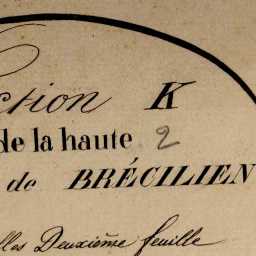 ction K
de la haute 2
de BRÉCILIEN
lles Deuxième feuille